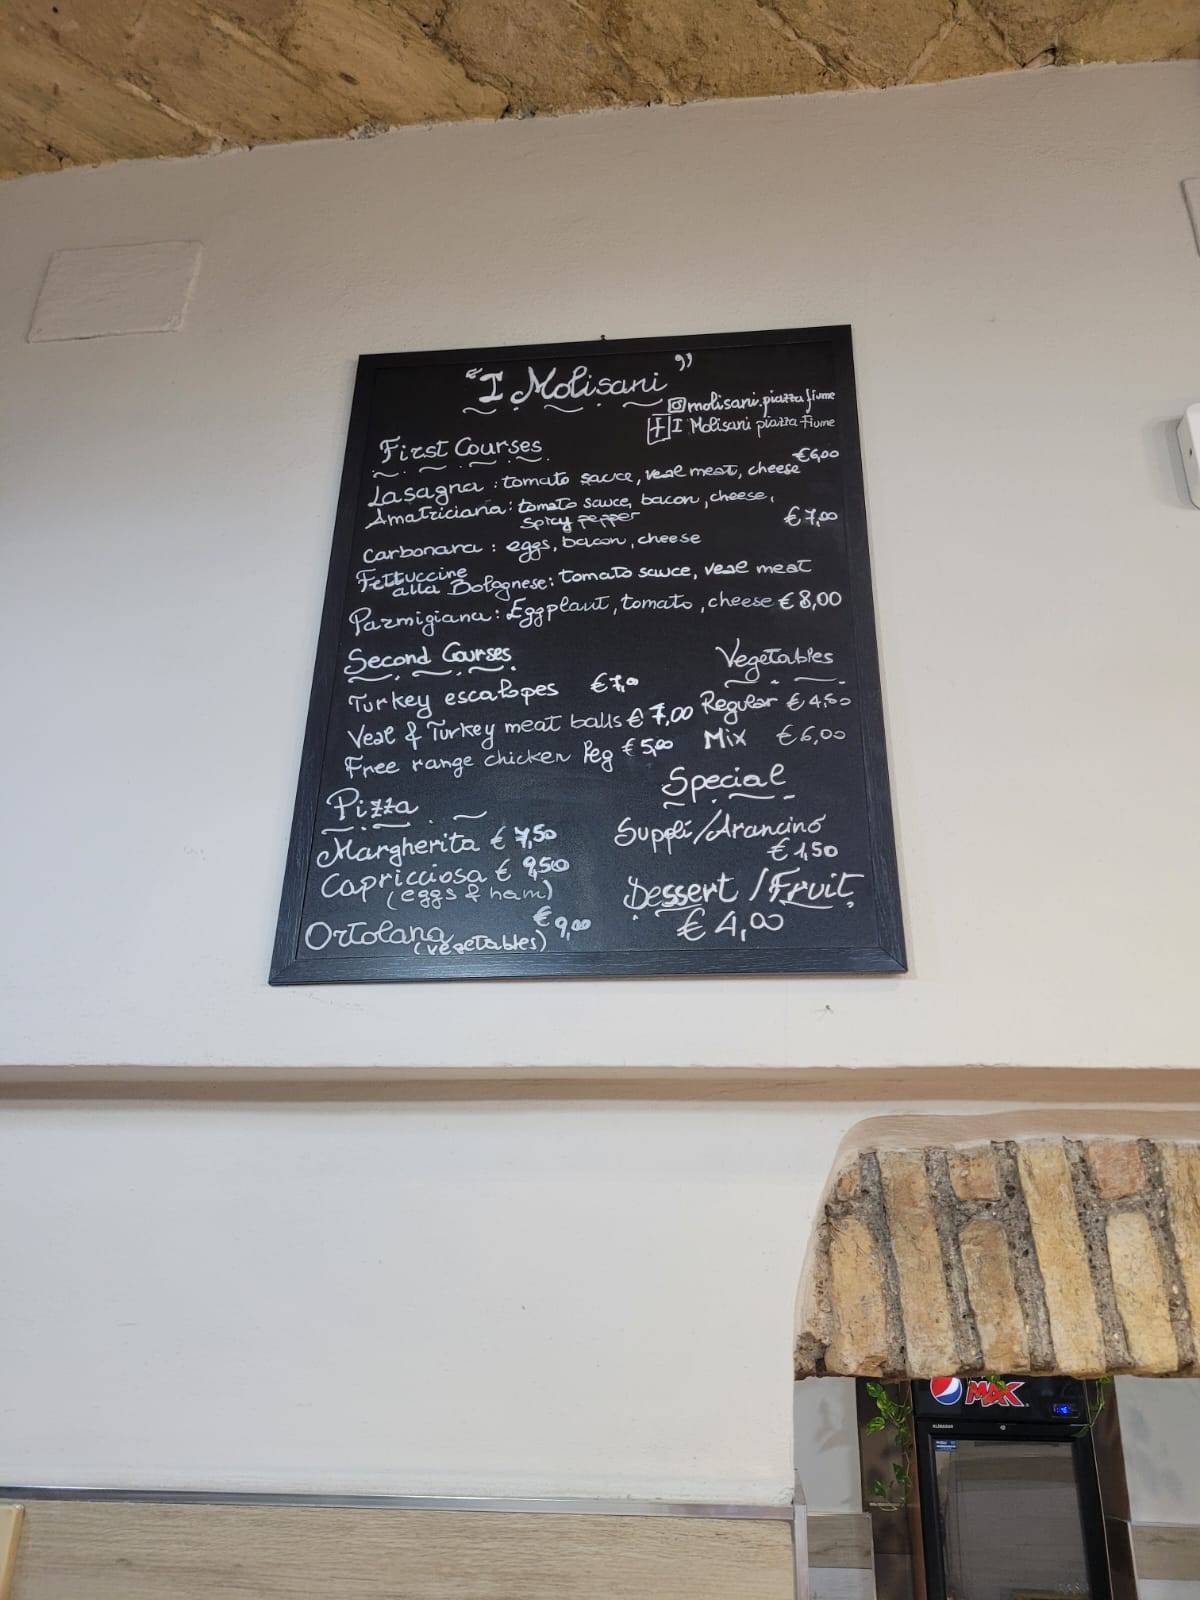 "I Molisani"
molisani.piazza fiume
I Molisani piazza Fiume
First Courses
Lasagna: tomato sauce, veal meat, cheese €6,00
Amatriciana: tomato sauce, bacon, cheese,
spicy pepper €7,00
Carbonara: eggs, bacon, cheese
Fettuccine
alla Bolognese: tomato sauce, veal meat
Parmigiana: Eggplant, tomato, cheese €8,00
Second Courses
Turkey escalopes €7,00
Veal & Turkey meat balls €7,00
Free range chicken leg €5,00
Vegetables
Regular €4,50
Mix €6,00
Special
Supplì/Arancino
€1,50
Dessert/Fruit
€4,00
Pizza
Margherita €7,50
Capricciosa €9,50
(eggs & ham)
Ortolana €9,00
(vegetables)
MAX